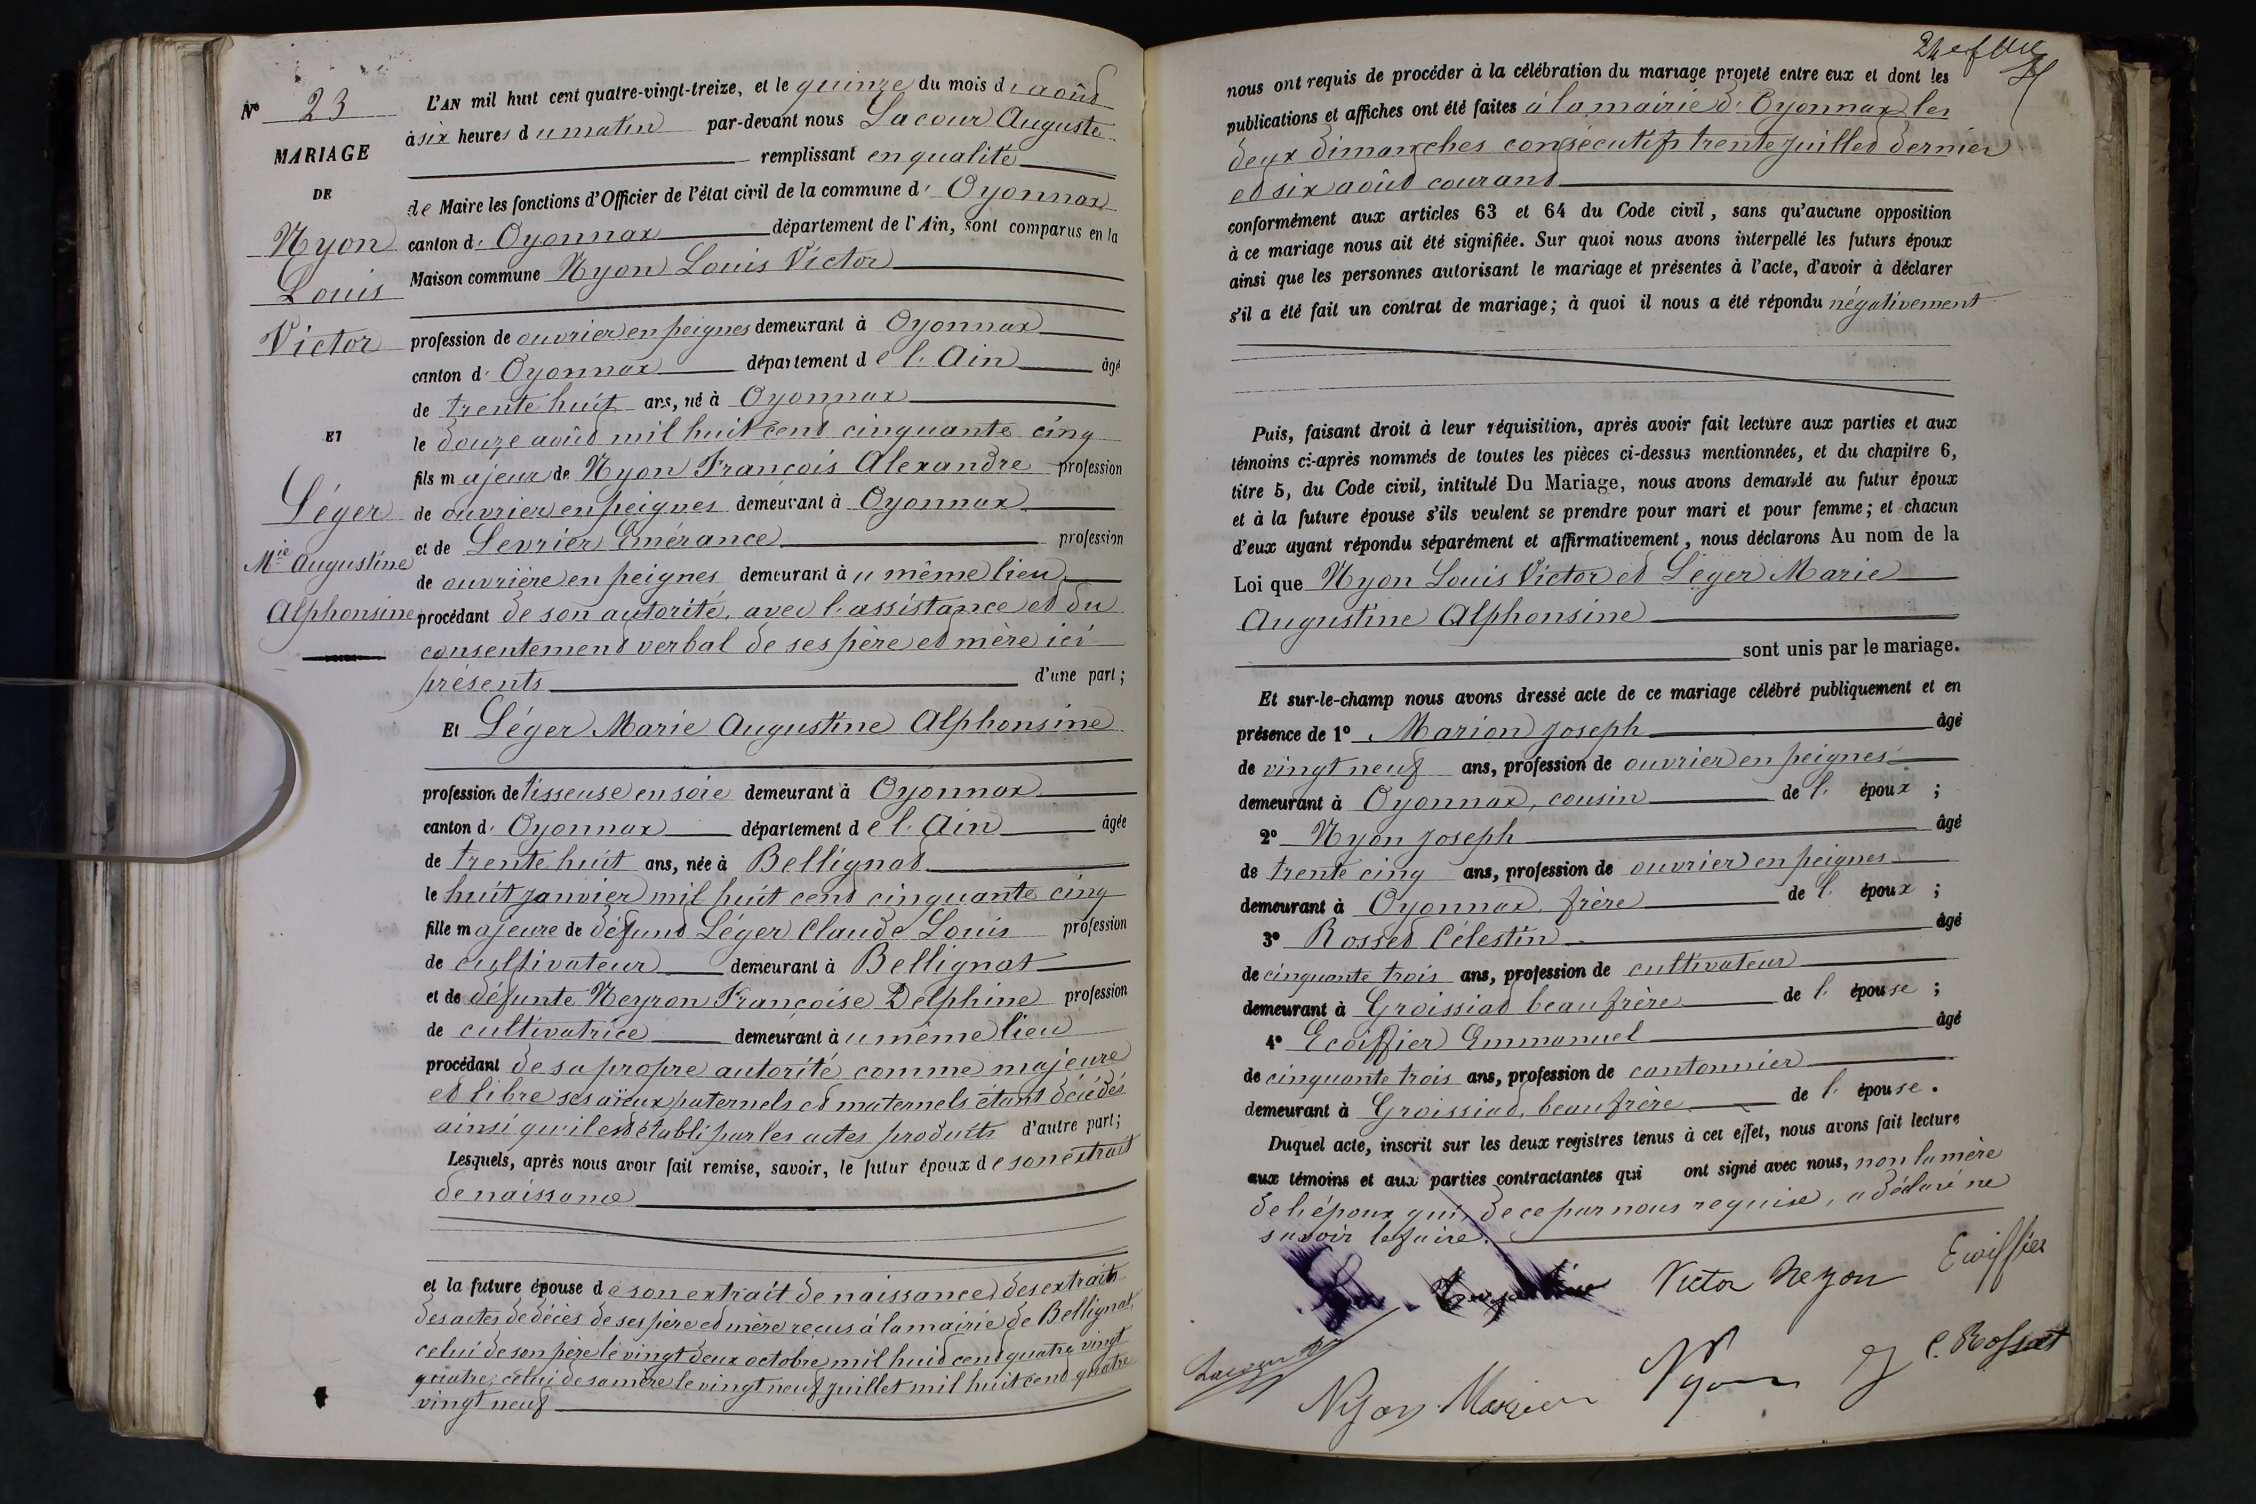 Nº 23
MARIAGE
DE
Nyon
Louis
Victor
ET
Léger
Mie Augustine
Alphonsine
L'AN mil huit cent quatre-vingt-treize, et le quinze du mois d' août
à six heures du matin par-devant nous Lacour Auguste
remplissant en qualité
de Maire les fonctions d'Officier de l'état civil de la commune d' Oyonnax
canton d' Oyonnax département de l'Ain, sont comparus en la
Maison commune Nyon Louis Victor
profession de ouvrier en peignes demeurant à Oyonnax
canton d' Oyonnax département de l'Ain âgé
de trente huit ans, né à Oyonnax
le douze août mil huit cent cinquante cinq
fils majeur de Nyon François Alexandre profession
de ouvrier en peignes demeurant à Oyonnax
et de Levrier Emérance profession
de ouvrière en peignes demeurant au même lieu
procédant de son autorité, avec l'assistance et du
consentement verbal de ses père et mère ici
présents d'une part ;
Et Léger Marie Augustine Alphonsine
profession de tisseuse en soie demeurant à Oyonnax
canton d' Oyonnax département de l'Ain âgée
de trente huit ans, née à Bellignat
le huit janvier mil huit cent cinquante cinq
fille majeure de défunt Léger Claude Louis profession
de cultivateur demeurant à Bellignat
et de défunte Neyron Françoise Delphine profession
de cultivatrice demeurant au même lieu
procédant de sa propre autorité comme majeure
et libre ses aïeux paternels et maternels étant décédés
ainsi qu'il est établi par les actes produits d'autre part ;
Lesquels, après nous avoir fait remise, savoir, le futur époux de son extrait
de naissance
et la future épouse de son extrait de naissance, des extraits
des actes de décès de ses père et mère reçus à la mairie de Bellignat,
celui de son père le vingt deux octobre mil huit cent quatre vingt
quatre, celui de sa mère le vingt neuf juillet mil huit cent quatre
vingt neuf
nous ont requis de procéder à la célébration du mariage projeté entre eux et dont les
publications et affiches ont été faites à la mairie d'Oyonnax les
deux dimanches consécutifs trente juillet dernier
et six août courant
conformément aux articles 63 et 64 du Code civil, sans qu'aucune opposition
à ce mariage nous ait été signifiée. Sur quoi nous avons interpellé les futurs époux
ainsi que les personnes autorisant le mariage et présentes à l'acte, d'avoir à déclarer
s'il a été fait un contrat de mariage ; à quoi il nous a été répondu négativement
Puis, faisant droit à leur réquisition, après avoir fait lecture aux parties et aux
témoins ci-après nommés de toutes les pièces ci-dessus mentionnées, et du chapitre 6,
titre 5, du Code civil, intitulé Du Mariage, nous avons demandé au futur époux
et à la future épouse s'ils veulent se prendre pour mari et pour femme ; et chacun
d'eux ayant répondu séparément et affirmativement, nous déclarons Au nom de la
Loi que Nyon Louis Victor et Léger Marie
Augustine Alphonsine
sont unis par le mariage.
Et sur-le-champ nous avons dressé acte de ce mariage célébré publiquement et en
présence de 1º Marion Joseph âgé
de vingt neuf ans, profession de ouvrier en peignes
demeurant à Oyonnax, cousin de l' époux ;
2º Nyon Joseph âgé
de trente cinq ans, profession de ouvrier en peignes
demeurant à Oyonnax, frère de l' époux ;
3º Rosset Célestin âgé
de cinquante trois ans, profession de cultivateur
demeurant à Groissiat beau frère de l' épouse ;
4º Ecoiffier Emmanuel âgé
de cinquante trois ans, profession de cantonnier
demeurant à Groissiat, beau frère de l' épouse.
Duquel acte, inscrit sur les deux registres tenus à cet effet, nous avons fait lecture
aux témoins et aux parties contractantes qui ont signé avec nous, non la mère
de l'époux qui, de ce par nous requise, a déclaré ne
savoir le faire.
Victor Neyon Ecoiffier
Lacour
Niyon Marion Nyon C. Rossset